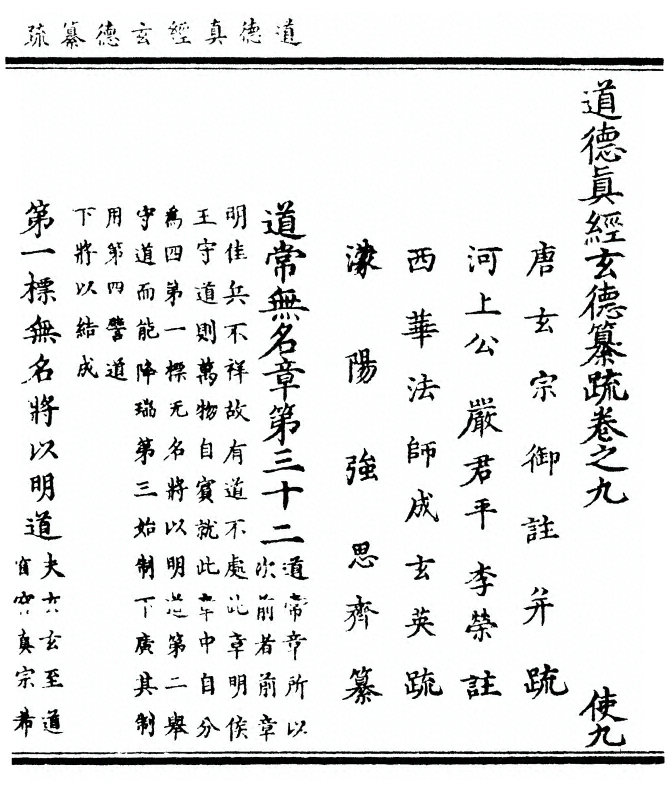 道德真經玄德纂疏
道德眞經玄德纂疏卷之九 使九
唐玄宗御註并疏
河上公嚴君平李榮註
西華法師成玄英疏
濛陽強思齊纂
道常無名章第三十二 道常章所以
次前者前章
明佳兵不祥故有道不處此章明侯
王守道則萬物自賓就此章中自分
為四第一標无名將以明道第二舉
守道而能降瑞第三始制下廣其制
用第四譬道
下將以結成
第一標無名將以明道 夫玄玄至道
真宗希